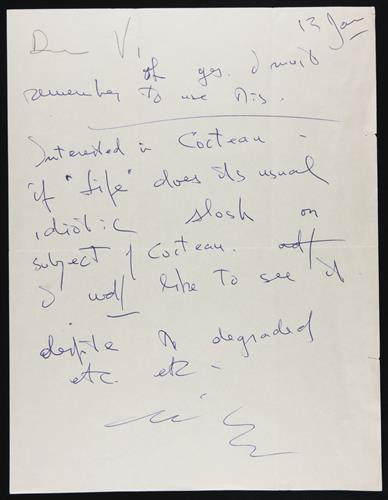 13 Jan
Dear Vi
of yes. I must
remember to use this.
Interested in Cocteau -
if "Life" does its usual
idiotic slosh on
subject of Cocteau.
I wd like to see it
despite degraded
etc. etc -